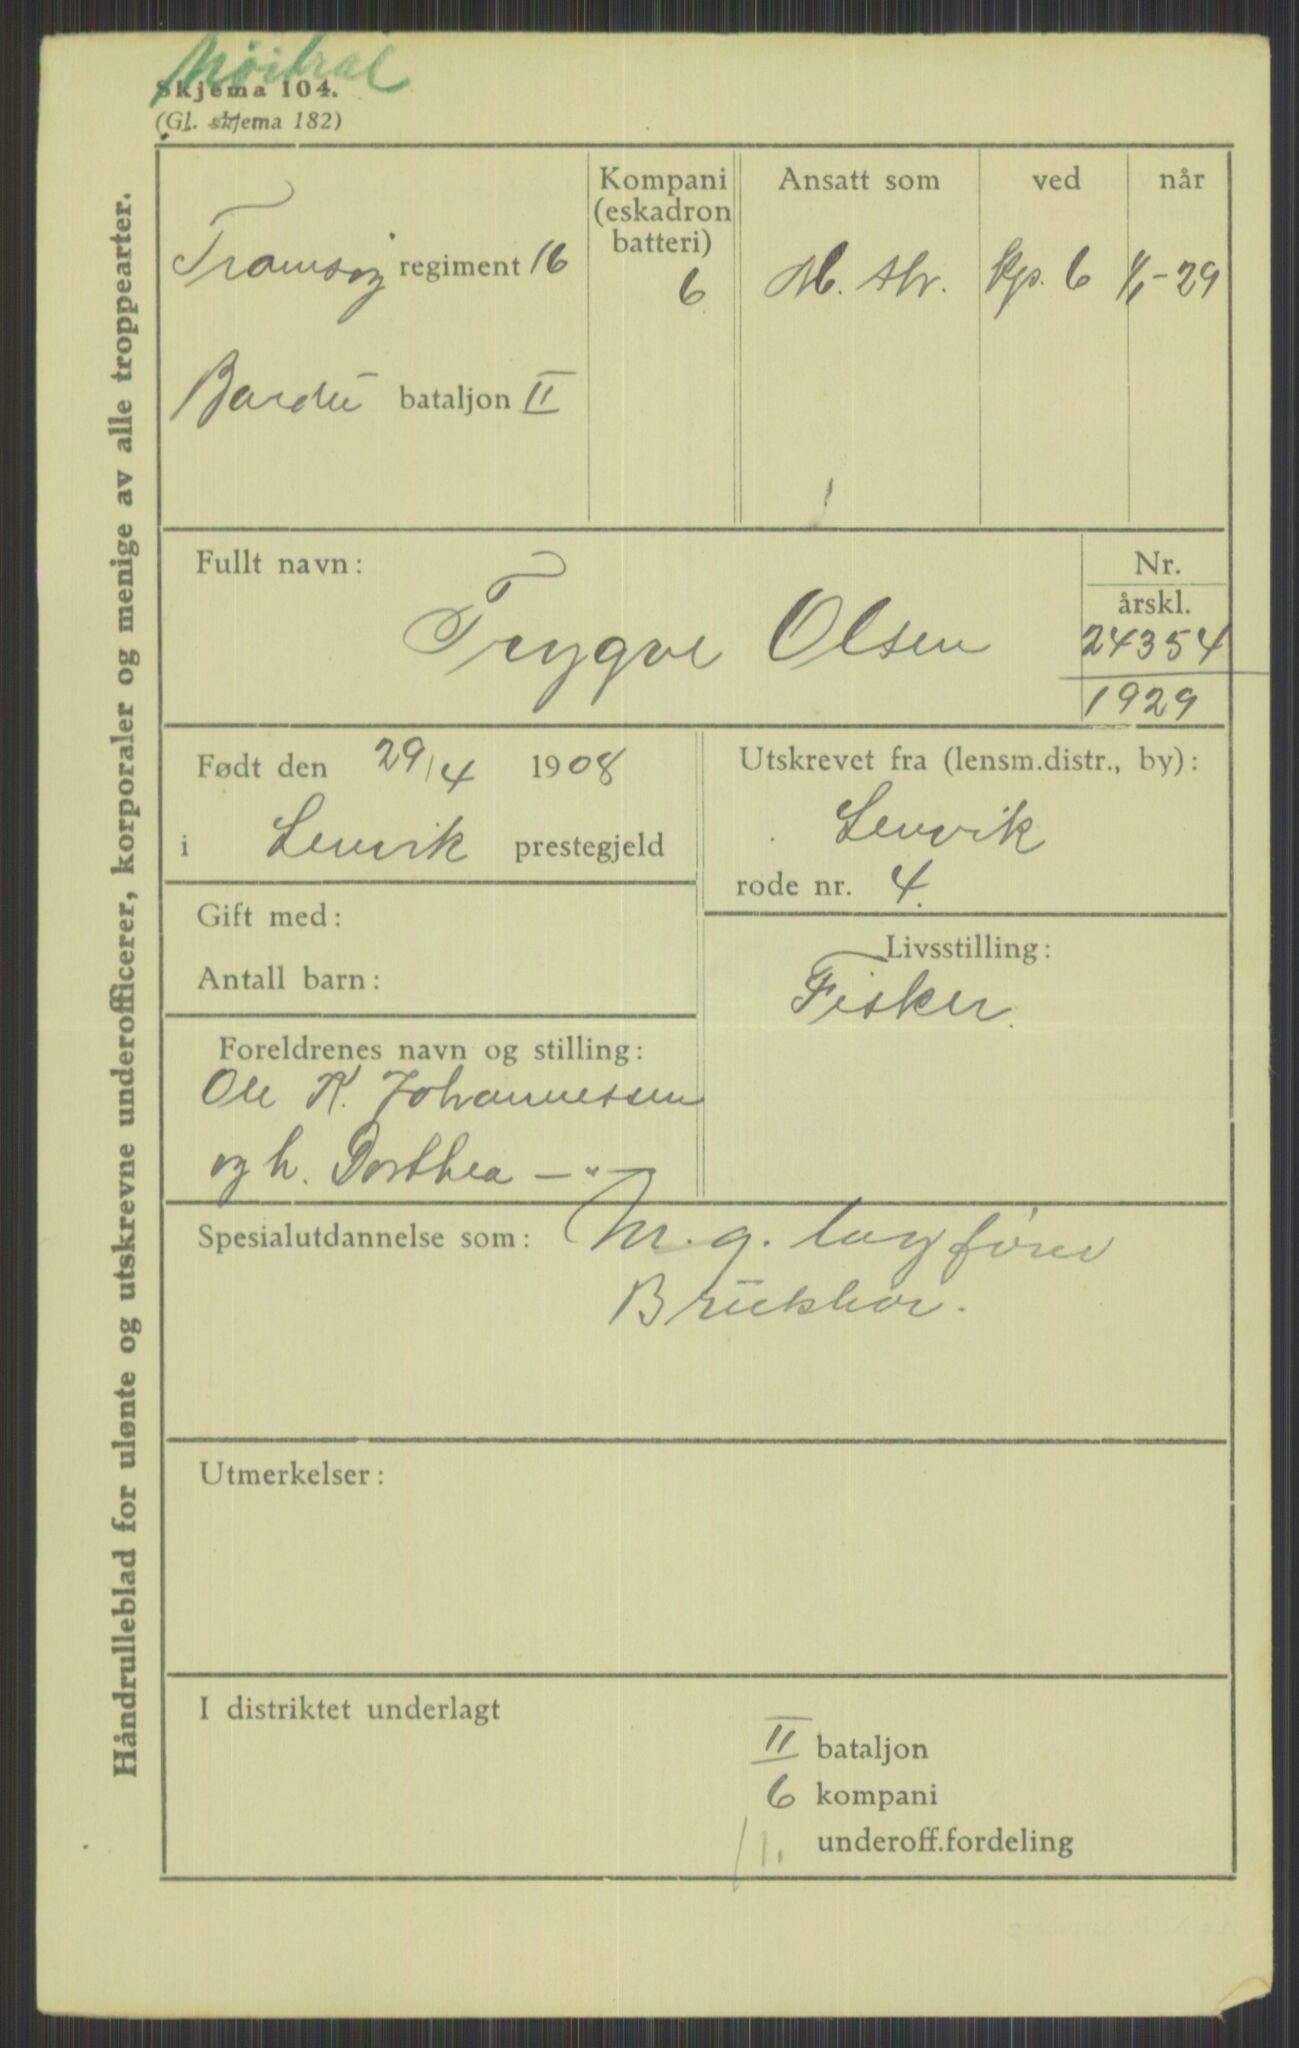 Nøitral
Skjema 104.
(Gl. skjema 182)
Håndrulleblad for ulønte og utskrevne underofficerer, korporaler og menige av alle troppearter.
Kompani
(eskadron
batteri)
Ansatt som
ved
når
Tromsø regiment 16
6
M. str.
kp. 6
1/1-29
Bardu bataljon II
Fullt navn:
Trygve Olsen
Nr.
årskl.
24354
1929
Født den 29/4 1908
i Lenvik prestegjeld
Utskrevet fra (lensm.distr., by):
Lenvik
rode nr. 4.
Gift med:
Antall barn:
Livsstilling:
Fisker.
Foreldrenes navn og stilling:
Ole K. Johannessen
og h. Dorthea —"—
Spesialutdannelse som: M.g. lagfører
Utmerkelser:
I distriktet underlagt
II bataljon
6 kompani
underoff.fordeling